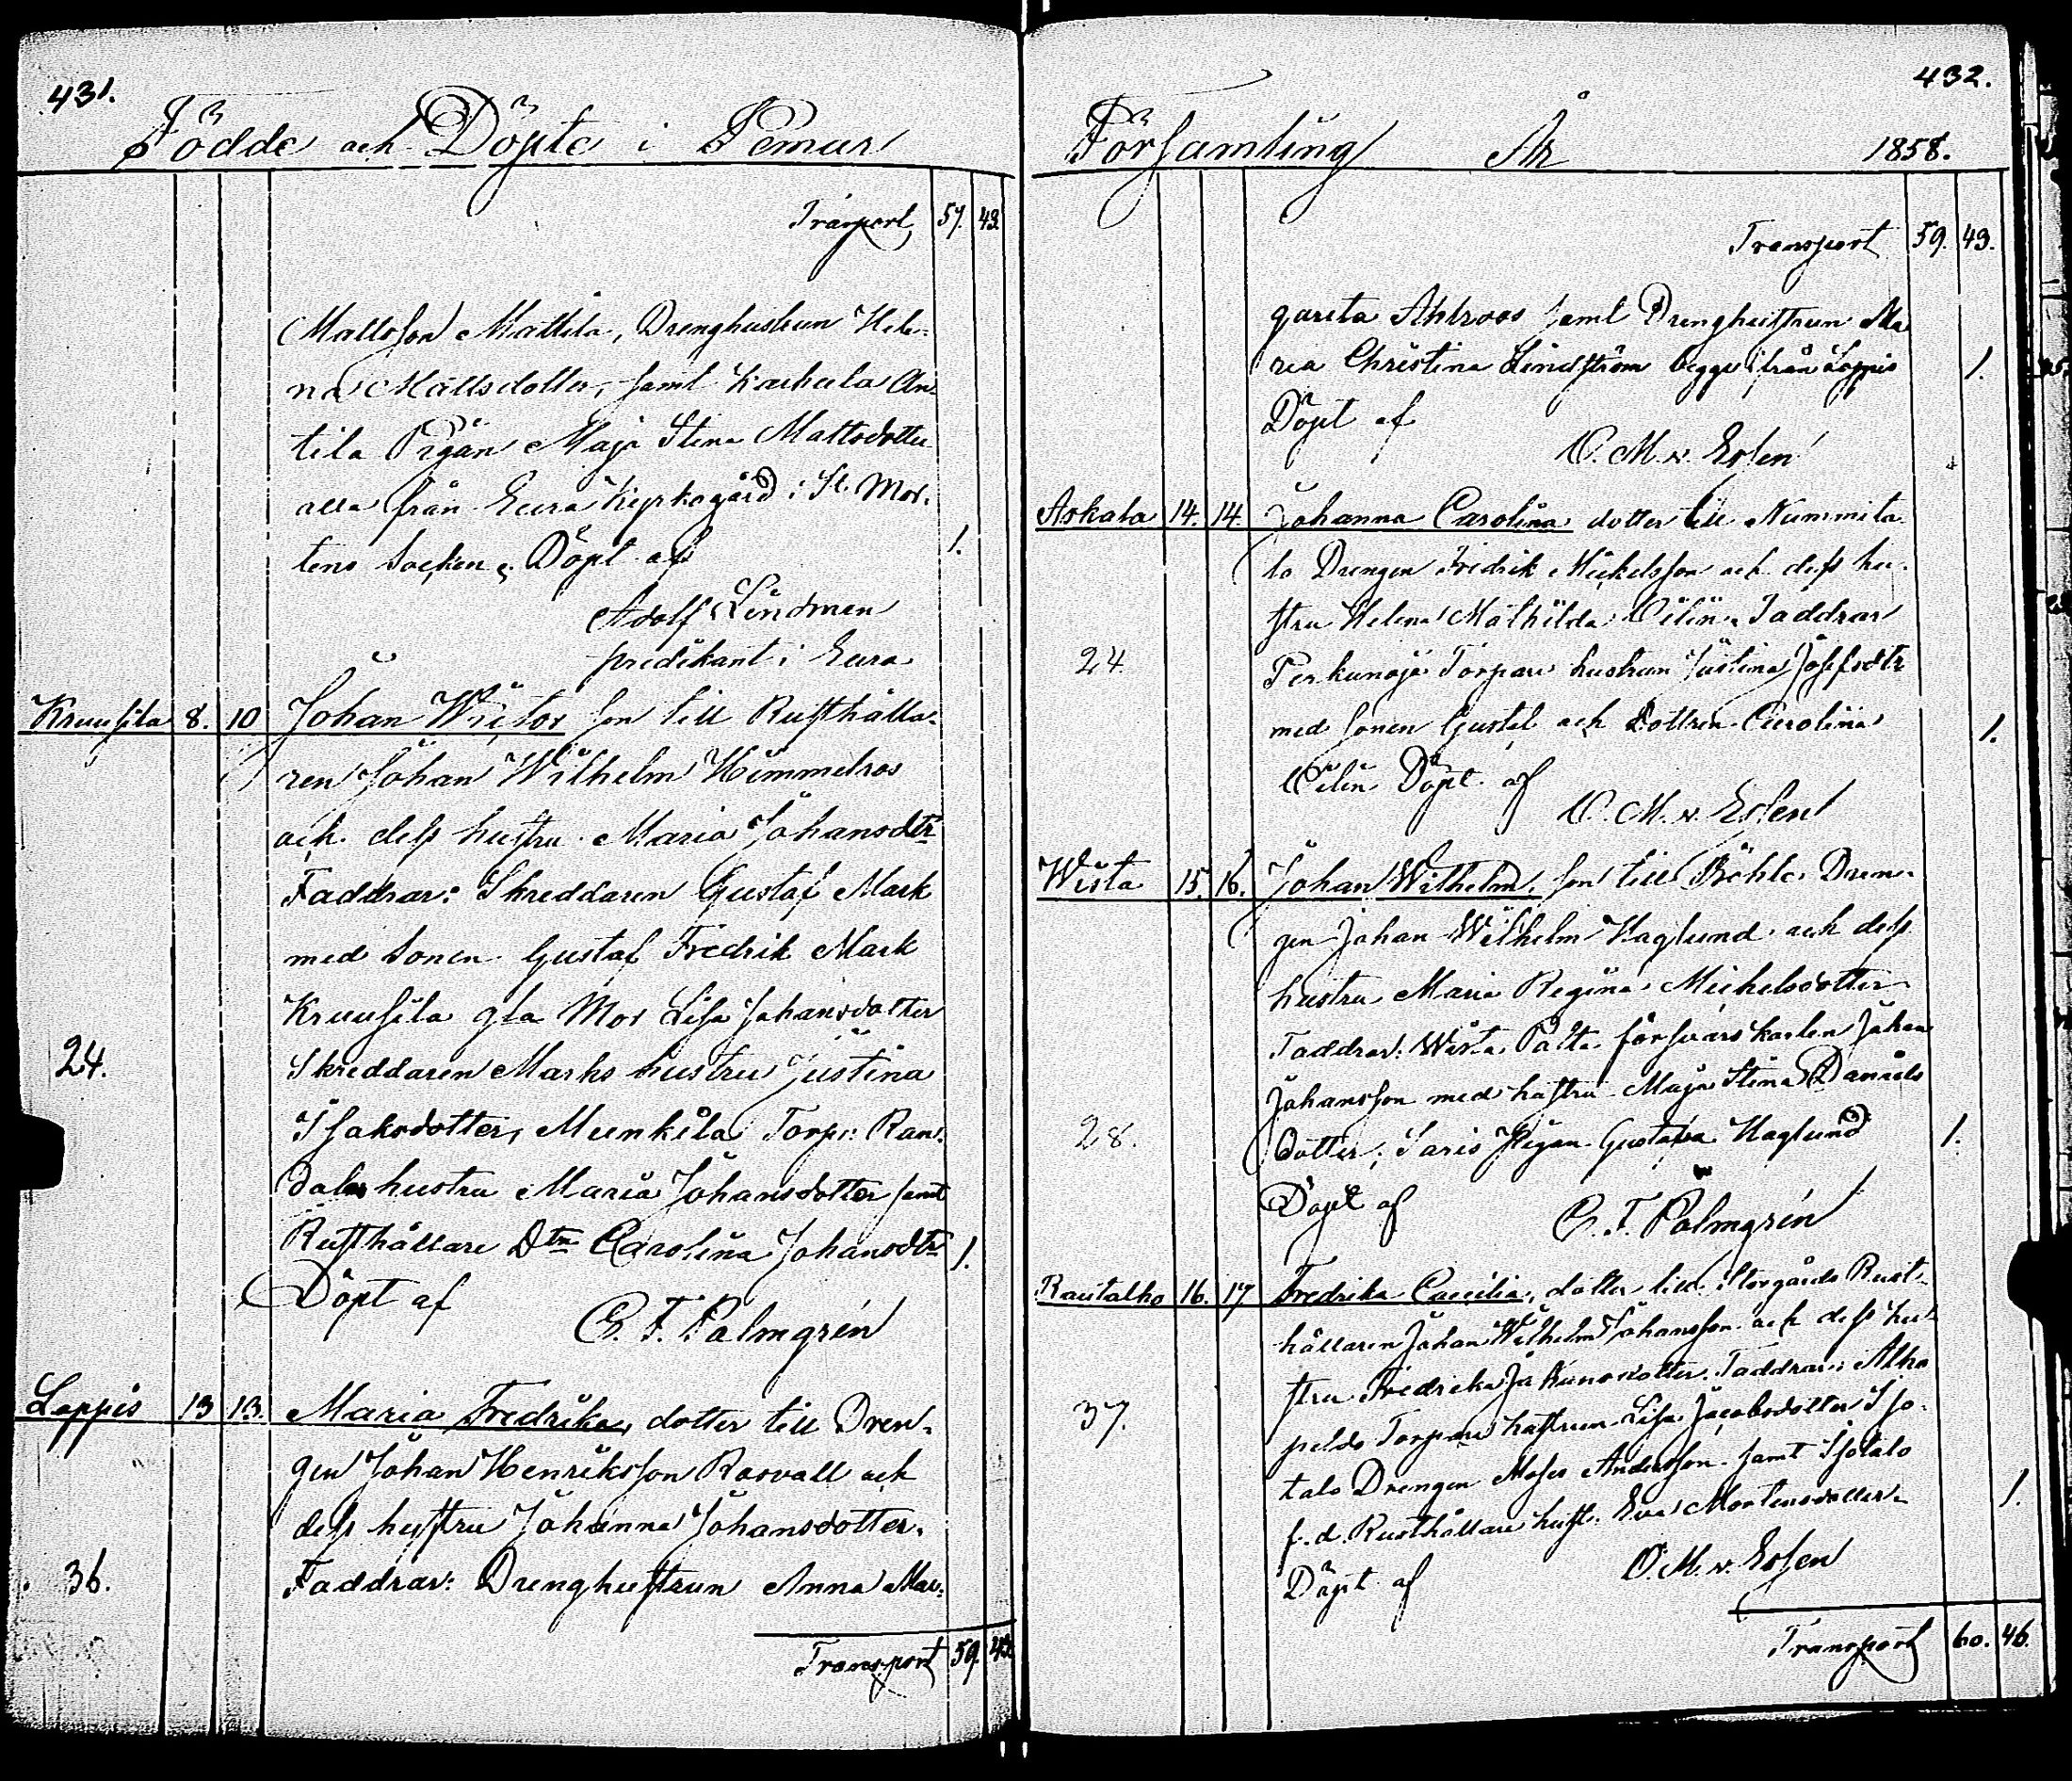 431.
Födde och Döpte i Pemar
Transport 57. 43.
Mattsson Mattila, Drenghustrun Hele-
na Mattsdotter, samt Karhula An-
tila Pigan Maja Stina Mattsdotter
alla från Eura Kyrkogård i St. Mår-
tens Socken; Döpt af 1.
Adolf Lindman
predikant i Eura
Kruusila 8. 10 Johan Wictor son till Rusthålla-
ren Johan Wilhelm Himmelros
och dess hustru Maria Johansdtr
Faddrar: Skreddaren Gustaf Mark
med Sonen Gustaf Fredrik Mark
Kruusila gla Mor Lisa Johansdotter
24. Skreddaren Marks hustru Justina
Isaksdotter, Munkila Torp. Ran-
dales hustru Maria Johansdotter samt
Rusthållare Dtrn Carolina Johansdtr 1.
Döpt af
C. F. Palmgrén
Loppis 13 13. Maria Fredrika, dotter till Dren-
gen Johan Henriksson Rosvall och
dess hustru Johanna Johansdotter.
36. Faddrar: Drenghustrun Anna Mar-
Transport 59. 43.
432.
Församling År 1858.
Transport 59. 43.
gareta Ahlroos samt Drenghustrun Ma
ria Christina Lindström begge från Loppis 1.
Döpt af
O. M. v. Essen
Askala 14. 14. Johanna Carolina dotter till Nummita
lo Drengen Fredrik Mickelsson och dess hu-
stru Helena Mathilda Cilén. Faddrar
24. Perkunoja Torpare hustrun Justina Josefsdtr
med Sonen Gustaf och Dottren Carolina 1.
Cilén Döpt af
O. M. v. Essen
Wista 15. 16. Johan Wilhelm, son till Böhle Dren-
gen Johan Wilhelm Haglund och dess
hustru Maria Regina Michelsdotter
Faddrar: Wista Pålta försvarskarlen Johan
Johansson med hustru Maja Stina Daniels
28. dotter; Saris Pigan Gustafva Haglund 1.
Döpt af
C. F. Palmgrén
Rautalho 16. 17 Fredrika Caecilia, dotter till Storgårds Rust-
hållaren Johan Wilhelm Johansson och dess hu-
stru Fredrika Jakunsdotter. Faddrar: Alho
37. pelds Torpare hustrun Lisa Jacobsdotter Iso-
talo Drengen Moses Andersson samt Isotalo
f. d. Rusthållare hust. Eva Mortensdotter. 1.
Döpt af O. M. v. Essen
Transport 60. 46.